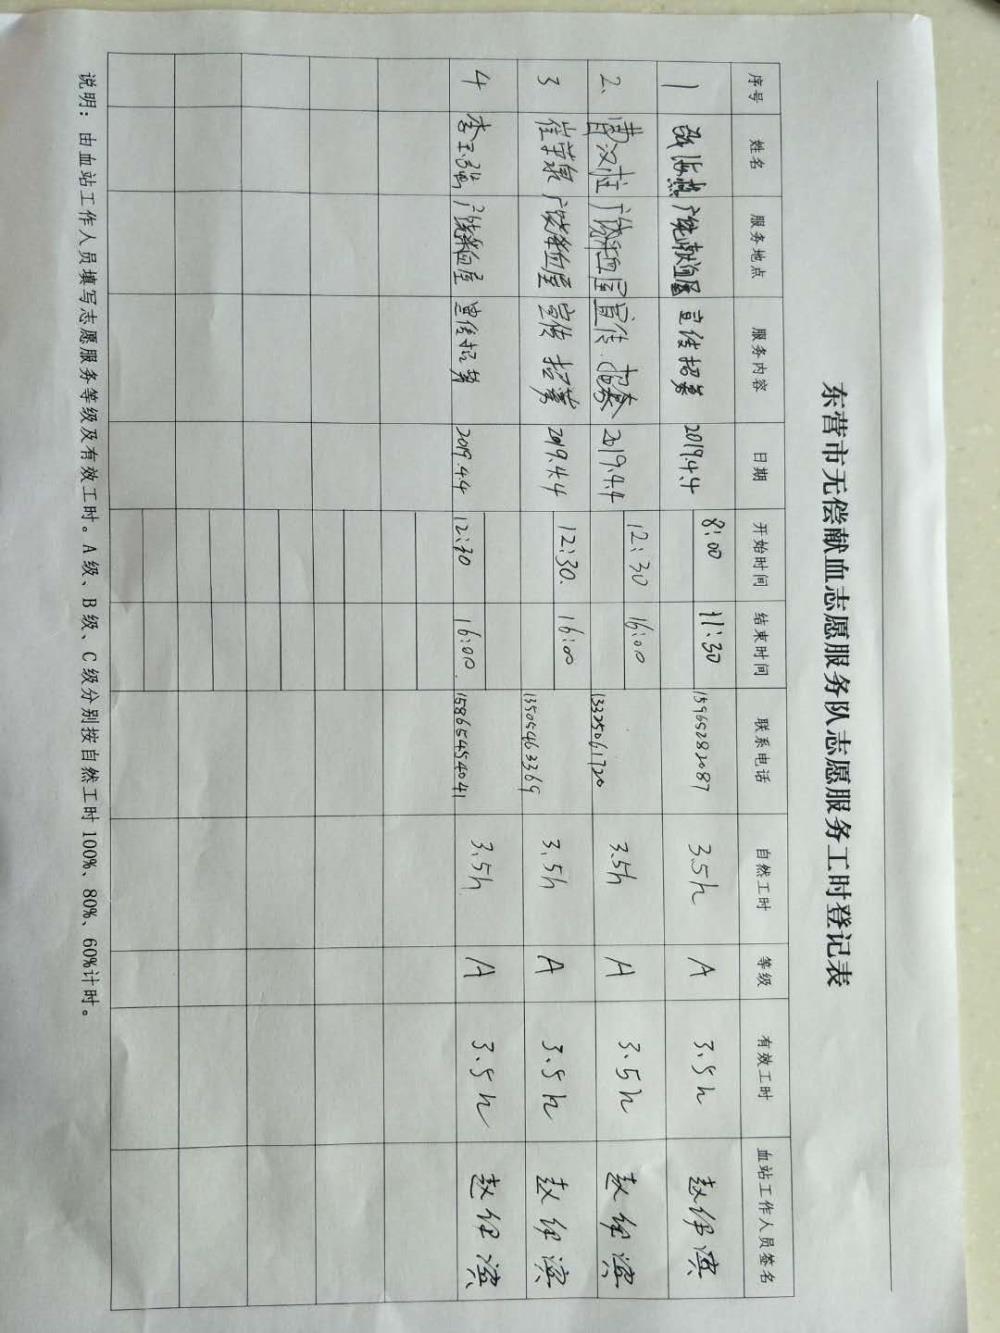 东营市无偿献血志愿服务队志愿服务工时登记表
序号 姓名 服务地点 服务内容 日期 开始时间 结束时间 联系电话 自然工时 等级 有效工时 血站工作人员签名
1 广饶献血屋 宣传招募 2019.4.4 8:00 11:30 15965282087 3.5h A 3.5h 赵伊滨
2、 曹汉柱 广饶献血屋 宣传.招募 2019.4.4 12:30 16:00 13325061720 3.5h A 3.5h 赵伊滨
3 崔学泉 广饶献血屋 宣传 招募 2019.4.4 12:30. 16:00 13505463369 3.5h A 3.5h 赵伊滨
4 李玉 广饶献血屋 宣传招募 2019.4.4 12:30 16:00. 15865454041 3.5h A 3.5h 赵伊滨
说明：由血站工作人员填写志愿服务等级及有效工时。A级、B级、C级分别按自然工时100%、80%、60%计时。